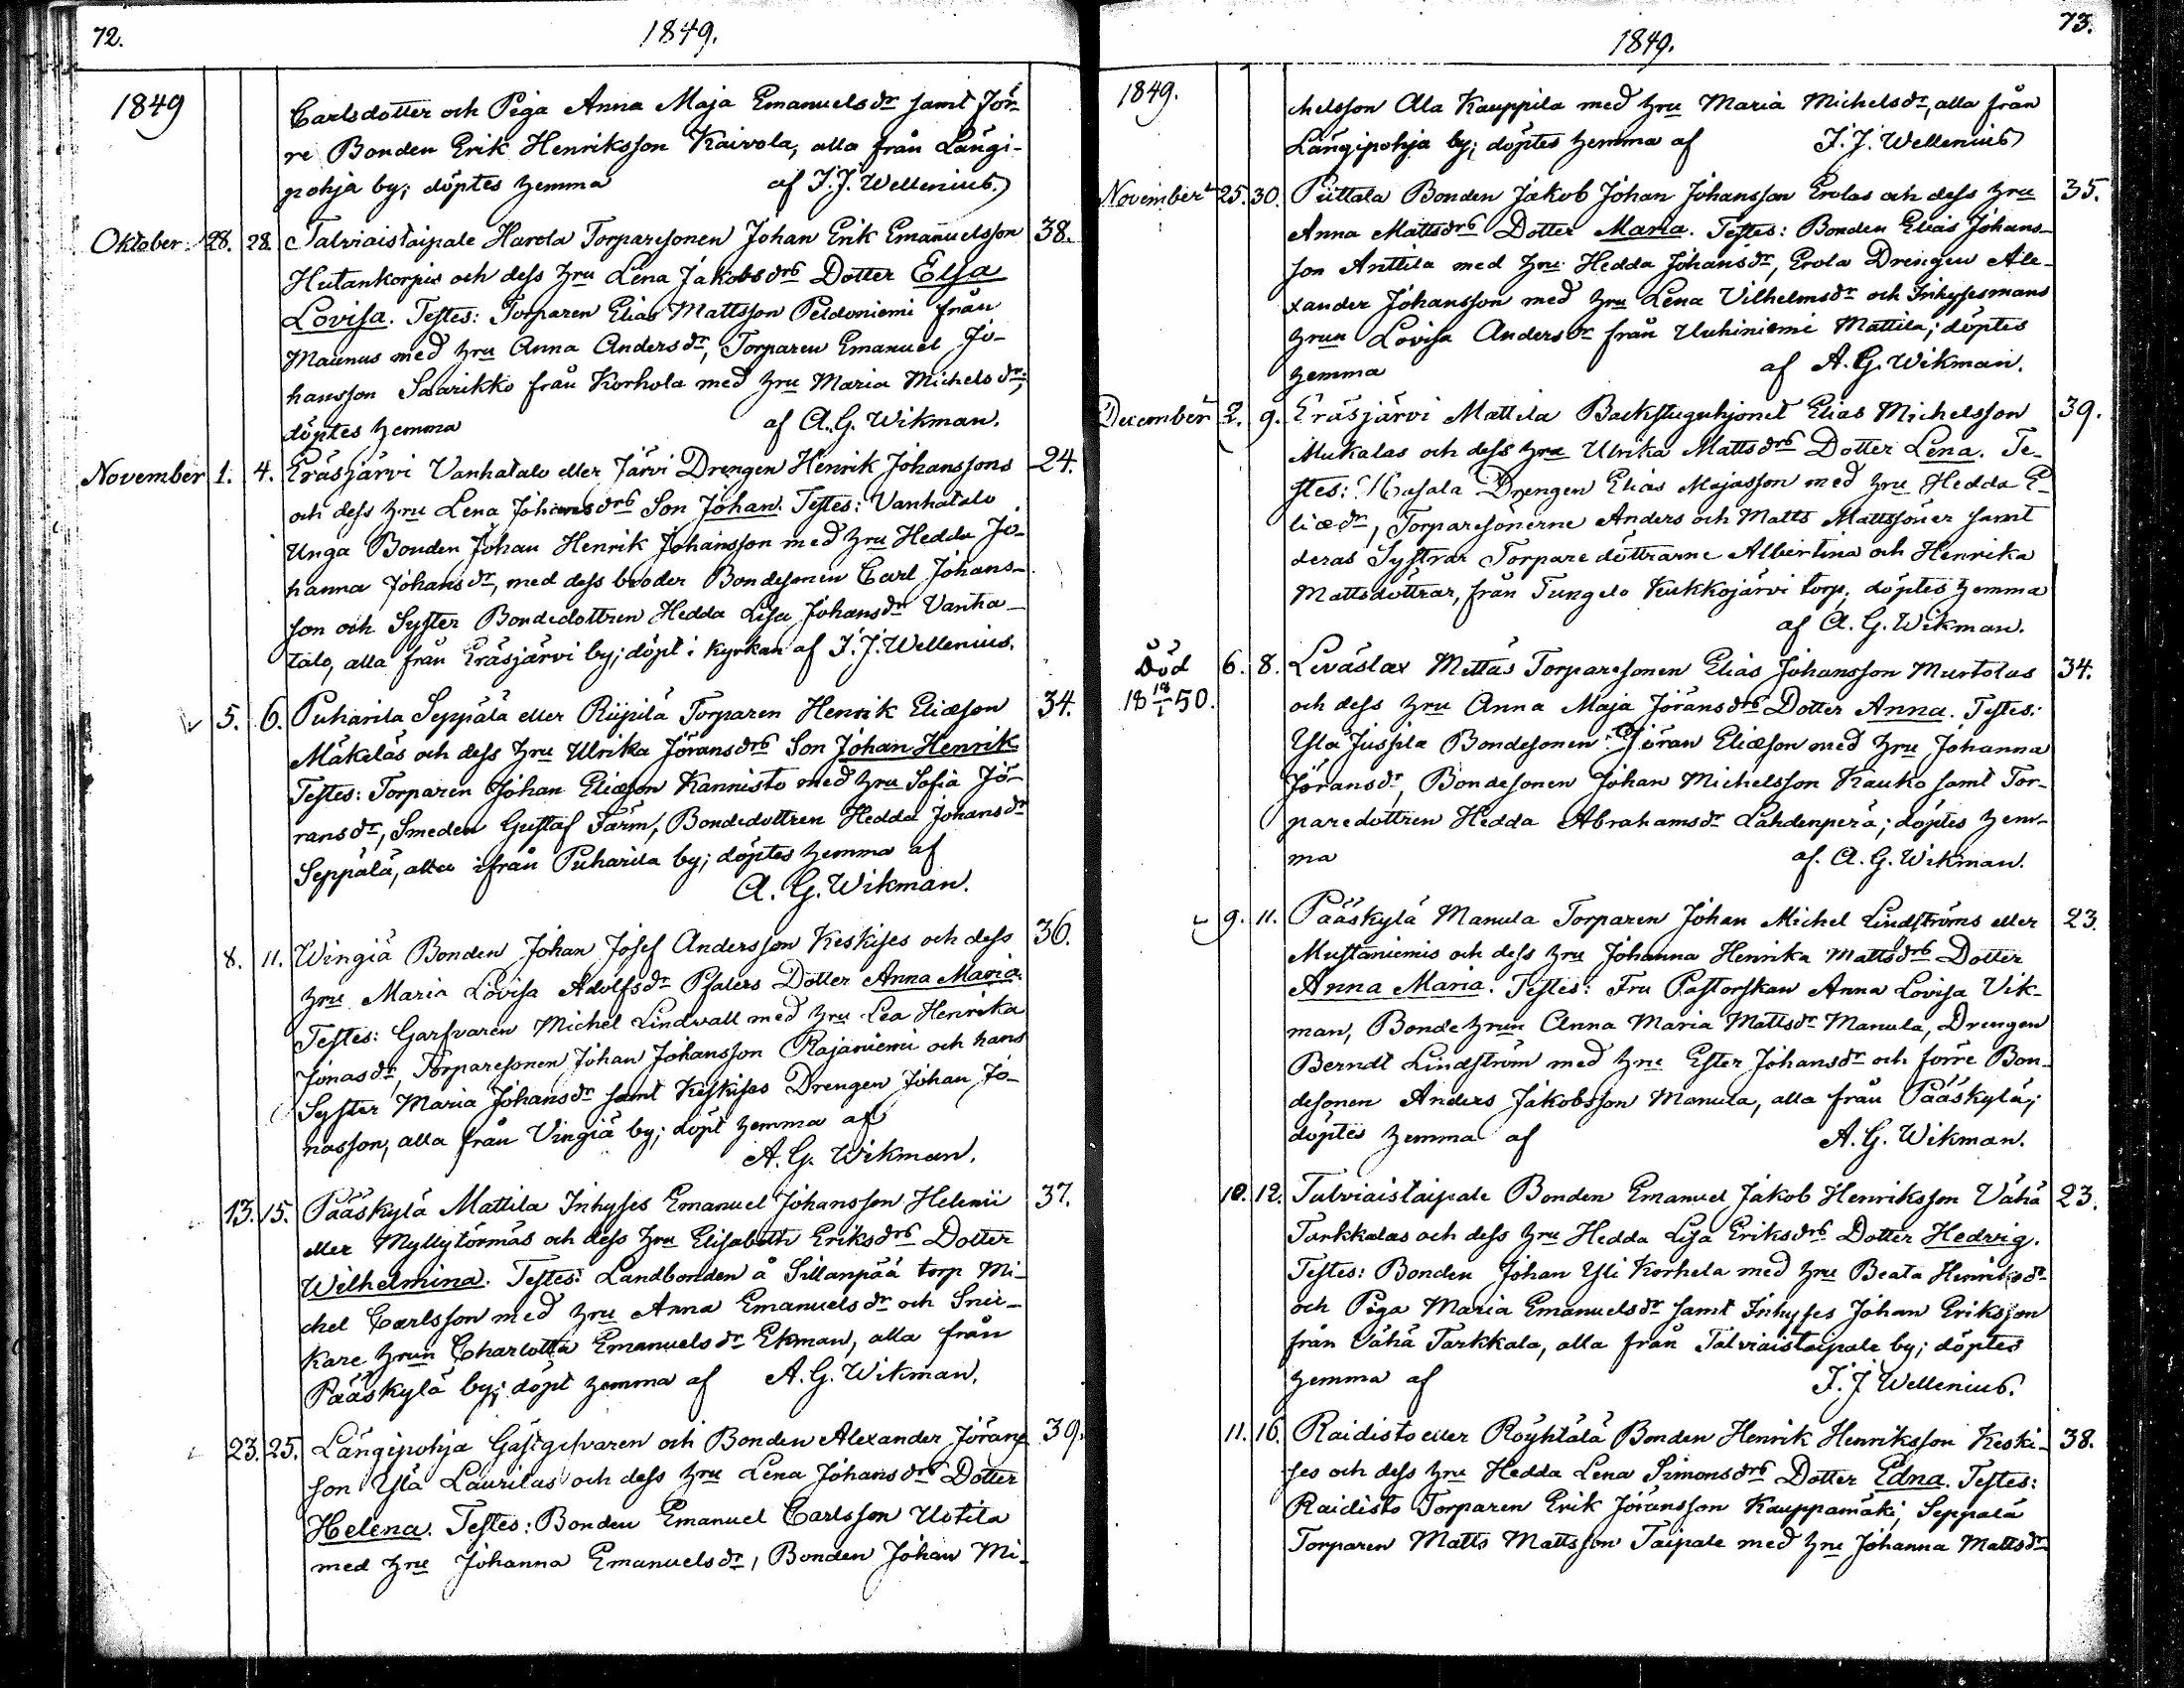 72.
1849.
1849
Carlsdotter och Piga Anna Maja Emanuelsdr samt för-
re Bonden Erik Henriksson Kaivola, alla från Längi-
pohja by; döptes hemma af I. J. Wellenius.
Oktober. 28. 28. Talviaistaipale Harola Torparesonen Johan Erik Emanuelsson 38.
Hutankorpis och dess hru Lena Jakobsdrs Dotter Elsa
Lovisa. Testes: Torparen Elias Mattsson Peldoniemi från
Maunus med hru Anna Andersdr, Torparen Emanuel Jo-
hansson Saarikko från Korhola med hru Maria Michelsdr;
döptes hemma af A. G. Wikman.
November 1. 4. Eräsjärvi Vanhatalo eller Järvi Drengen Henrik Johanssons 24.
och dess hru Lena Johansdrs Son Johan. Testes: Vanhatalo
Unga Bonden Johan Henrik Johansson med hru Hedda Jo-
hanna Johansdr, med dess broder Bondesonen Carl Johans-
son och Syster Bondedottren Hedda Lisa Johansdr Vanha-
talo, alla från Eräsjärvi by; döpt i kyrkan af I. J. Wellenius.
5. 6. Puharila Seppälä eller Riipilä Torparen Henrik Eliæson 34.
Mäkeläs och dess hru Ulrika Jöransdrs Son Johan Henrik
Testes: Torparen Johan Eliæson Kannisto med hru Sofia Jö-
ransdr, Smeden Gustaf Färm, Bondedottren Hedda Johansdr
Seppälä, alla ifrån Puharila by; döptes hemma af
A. G. Wikman.
8. 11. Wingiä Bonden Johan Josef Andersson Keskises och dess 36.
hru Maria Lovisa Adolfsdr Psalers Dotter Anna Maria.
Testes: Garfvaren Michel Lindvall med hru Lea Henrika
Jonasdr, Torparesonen Johan Johansson Rajaniemi och hans
Syster Maria Johansdr samt Keskises Drengen Johan Jo-
nasson, alla från Vingiä by; döpt hemma af
A. G. Wikman.
13. 15. Pääskylä Mattila Inhyses Emanuel Johansson Helenii 37.
eller Myllytörmäs och dess hru Elisabeth Eriksdrs Dotter
Wilhelmina. Testes: Landbonden å Sillanpää torp Mi-
chel Carlsson med hru Anna Emanuelsdr och Snic-
kare hrun Charlotta Emanuelsdr Ekman, alla från
Pääskylä by; döpt hemma af A. G. Wikman.
23. 25. Längipohja Gästgifvaren och Bonden Alexander Jörans 39.
son Ylä Laurilas och dess hru Lena Johansdrs Dotter
Helena. Testes: Bonden Emanuel Carlsson Uotila
med hru Johanna Emanuelsdr, Bonden Johan Mi-
73.
1849.
1849.
chelsson Ala Kauppila med hru Maria Michelsdr, alla från
Längipohja by; döptes hemma af I. J. Wellenius
November 25. 30. Piittala Bonden Jakob Johan Johansson Erolas och dess hru 35.
Anna Mattsdrs Dotter Maria. Testes: Bonden Elias Johans-
son Anttila med hru Hedda Johansdr, Erola Drengen Ale-
xander Johansson med hru Lena Vilhelmsdr och Inhysesmans
hrun Lovisa Andersdr från Uuhiniemi Mattila; döptes
hemma af A. G. Wikman.
December 2. 9. Eräsjärvi Mattila Backstuguhjonet Elias Michelsson 39.
Mukalas och dess hru Ulrika Mattsdrs Dotter Lena. Te-
stes: Kusala Drengen Elias Majasson med hru Hedda E-
liædr, Torparesönerne Anders och Matts Mattssöner samt
deras Systrar Torparedöttrarne Albertina och Henrika
Mattsdöttrar, från Tungelo Kukkojärvi torp; döptes hemma
af A. G. Wikman.
Död 6. 8. Leväslax Mettäs Torparesonen Elias Johansson Murtolas 34.
18 18/1 50. och dess hru Anna Maja Jöransdrs Dotter Anna. Testes:
Ylä Jussila Bondesonen Jöran Eliæson med hru Johanna
Jöransdr, Bondesonen Johan Michelsson Kauko samt Tor-
paredottren Hedda Abrahamsdr Lahdenperä; döptes hem-
ma af. A. G. Wikman.
9. 11. Pääskylä Manula Torparen Johan Michel Lindströms eller 23.
Mustaniemis och dess hru Johanna Henrika Mattsdrs Dotter
Anna Maria. Testes: Fru Pastorskan Anna Lovisa Vik-
man, Bonde hrun Anna Maria Mattsdr Manula, Drengen
Berndt Lindström med hru Ester Johansdr och förre Bon-
desonen Anders Jakobsson Manula, alla från Pääskylä;
döptes hemma af A. G. Wikman.
10. 12. Talviaistaipale Bonden Emanuel Jakob Henriksson Vähä 23.
Tarkkalas och dess hru Hedda Lisa Eriksdrs Dotter Hedvig.
Testes: Bonden Johan Yli Korhela med hru Beata Henriksdr
och Piga Maria Emanuelsdr samt Inhyses Johan Eriksson
från Vähä Tarkkala, alla från Talviaistaipale by; döptes
hemma af I. J. Wellenius.
11. 16. Raidisto eller Röyhtälä Bonden Henrik Henriksson Keski- 38.
ses och dess hru Hedda Lena Simonsdrs Dotter Edna. Testes:
Raidisto Torparen Erik Jöransson Kauppamäki, Seppälä
Torparen Matts Mattsson Taipale med hru Johanna Mattsdr